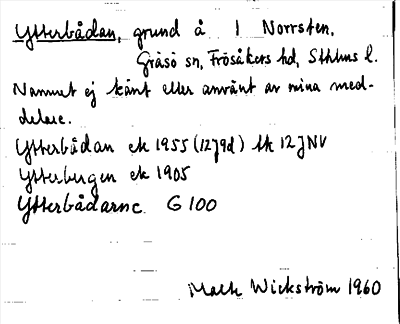 Ytterbådan, grund å l Norrsten,
Gräsö sn, Frösåkers hd, Sthlms l.
Namnet ej känt eller använt av mina med-
delare.
Ytterbådan ek 1955 (12J9d) tk 12J NV
Ytterbergen ek 1905
Ytterbådarne G 100
Mats Wickström 1960